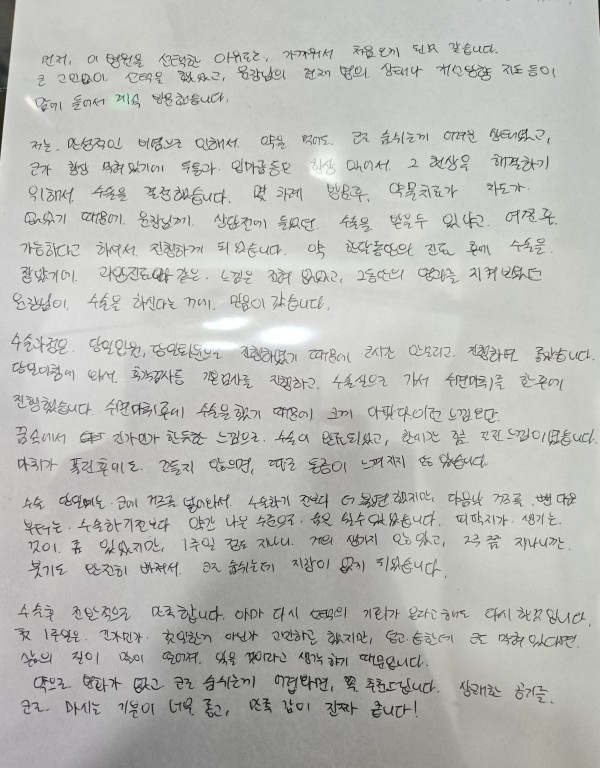 먼저, 이 병원을 선택한 이유로는, 가까워서 처음 오게 된것 같습니다.
큰 고민없이 선택을 했었고, 원장님의 현재 병의 상태나 개선방향 지도 등이
맘에 들어서 계속 방문했습니다.
저는, 만성적인 비염으로 인해서. 약을 먹어도 코로 숨쉬는게 어려운 상태였고,
코가 항상 막혀있기에 두통과 입마름등도 항상 있어서. 그 현상을 해결하기
위해서 수술을 결정했습니다. 몇 차례 방문후, 약물치료가 차도가
없었기 때문에. 원장님께. 상담전에 들었던. 수술을 받을수 있냐고. 여쭌후
가능하다고 하여서 진행하게 되었습니다. 약 한달동안의 진료 후에 수술을
잡았기에. 과잉진료와 같은. 느낌은 전혀 없었고, 그동안의 경과를 지켜보았던
원장님이, 수술을 하신다는 게에. 믿음이 갔습니다.
수술과정은. 당일입원, 당일퇴원으로 진행하였기 때문에 큰시간 안들이고. 진행하면 좋았습니다.
당일아침에 와서. 혈액검사등 기본검사를 진행하고. 수술실으로 가서 수면마취를 한후에
진행했습니다. 수면마취후에 수술을 했기 때문에 크게 아팠다 이런 느낌은
꿈속에서 뭔가 지나간듯한 느낌으로. 수술이 완료되었고, 한시간 정도 걸린 느낌이었습니다.
마취가 풀린후에도. 건들지 않으면, 따로 통증이 느껴지지 않았습니다.
수술 당일에는. 코에 거즈를 넣어놔서. 수술하기 전보다 더 불편했지만, 다음날 거즈를. 뺀 다음
부터는. 수술하기전보다 약간 나은 수준으로. 숨을 쉴수 있었습니다. 피딱지가. 생기는.
것이 좀 있었지만, 1주일 정도 지나니. 거의 생기지 않았고, 2주 쯤 지나니깐.
붓기도 완전히 빠져서. 코로 숨쉬는데 지장이 없게 되었습니다.
수술후 전반적으로 만족합니다. 아마 다시 선택의 기회가 온다고해도 다시 할것 입니다.
첫 1주일은. 괜히한거. 후회할거 아닌가 고민하긴 했지만, 답답한데 코도 막혀 있다면.
삶의 질이 많이 떨어져. 있을 것이라고 생각 하기 때문입니다.
약으로. 변화가 없고 코로 숨쉬는게 어렵다면, 꼭 추천드립니다. 상쾌한 공기를.
코로. 마시는 기분이 너무 좋고, 만족 감이 진짜 큽니다!